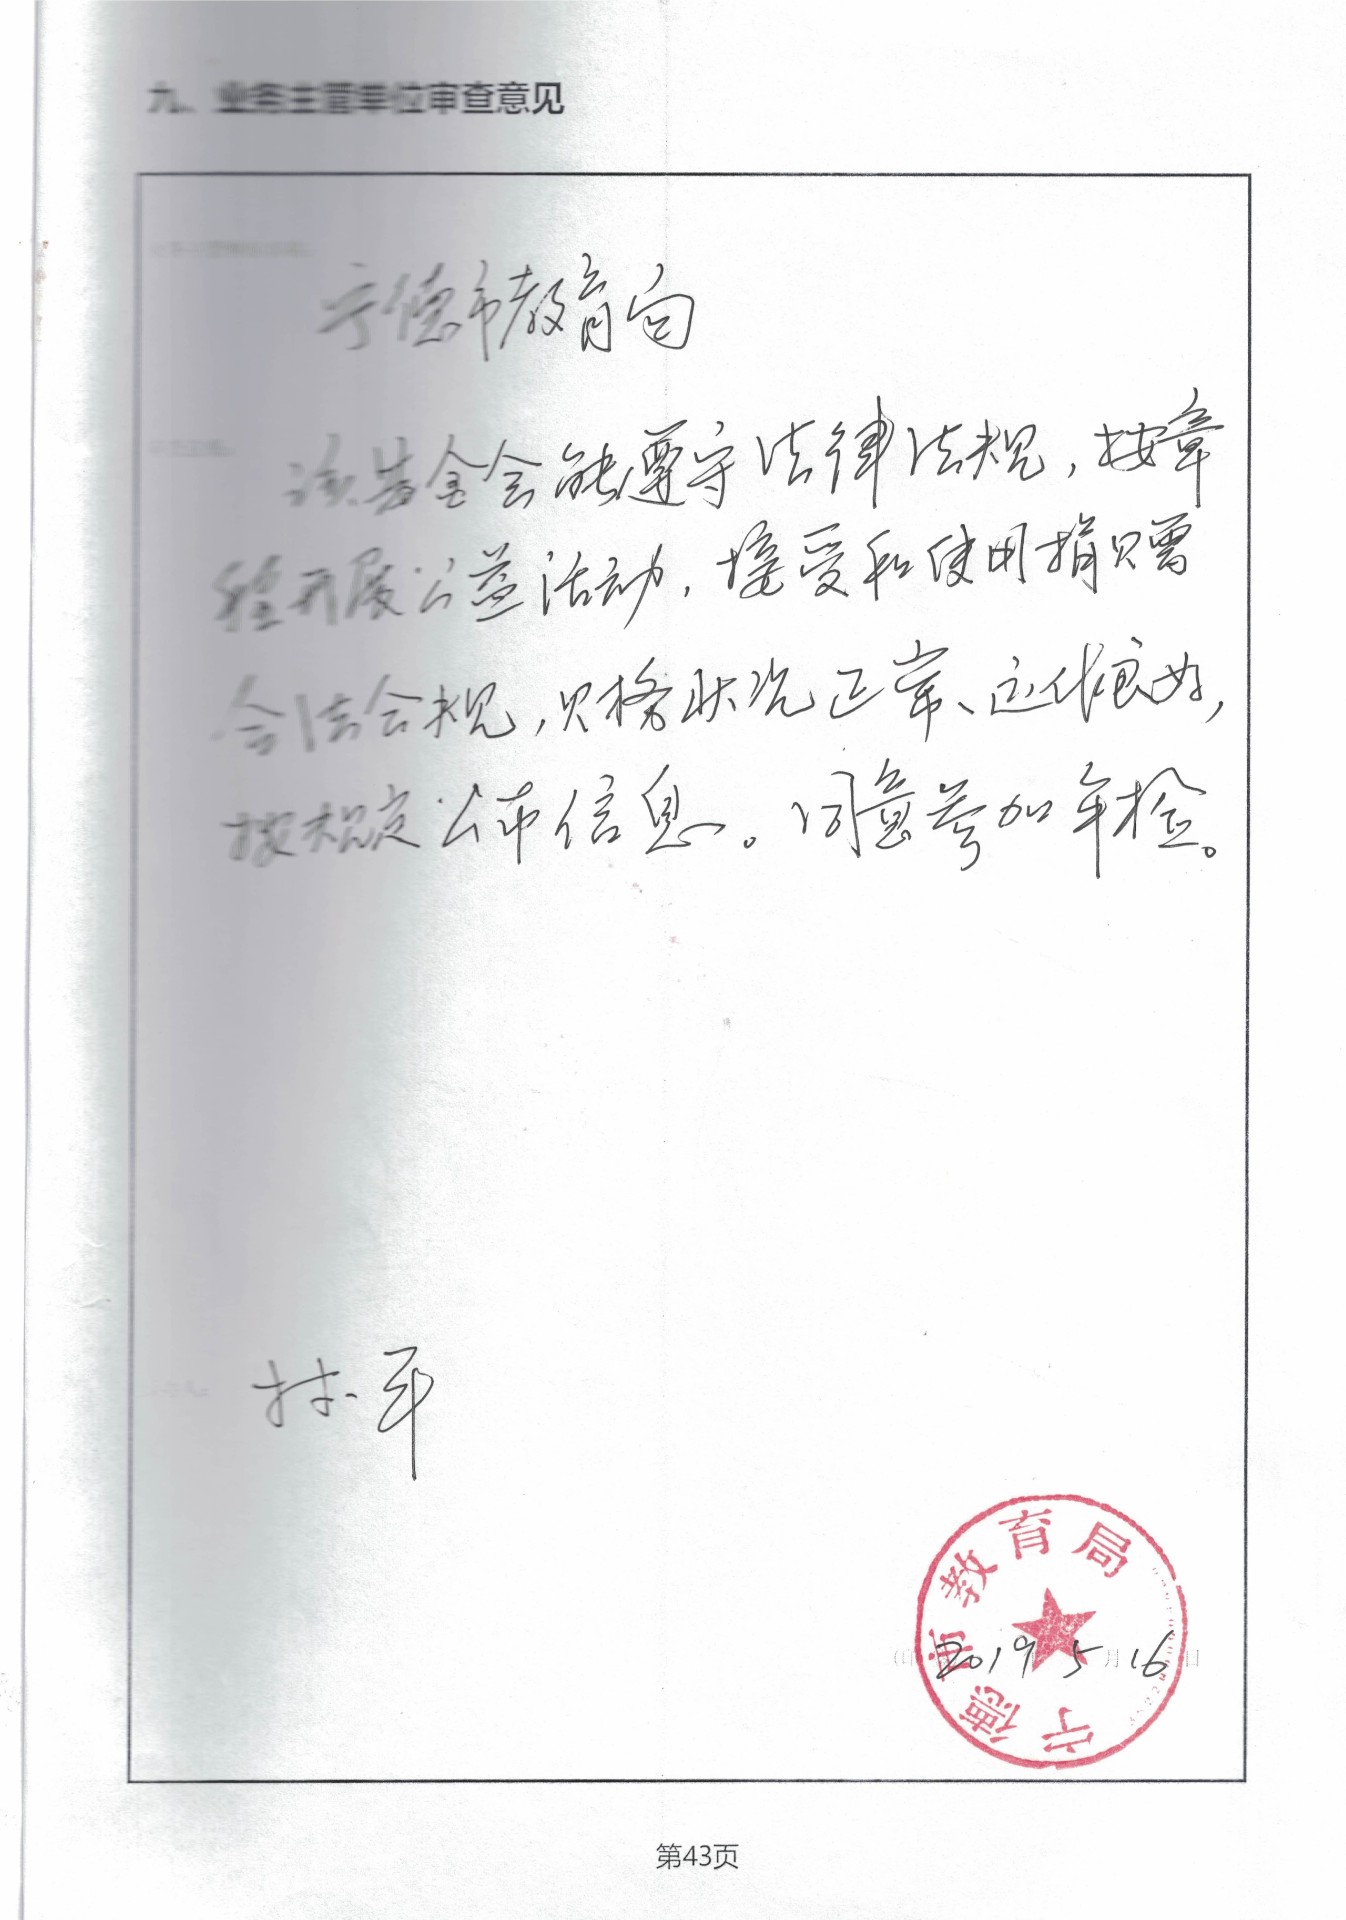 九、业务主管单位审查意见
宁德市教育局
该基金会能遵守法律法规，按章
程开展公益活动，接受和使用捐赠
合法合规，财务状况正常、运作良好，
按规定公布信息。同意参加年检。
林平
宁德市教育局
2019 5月16日
第43页